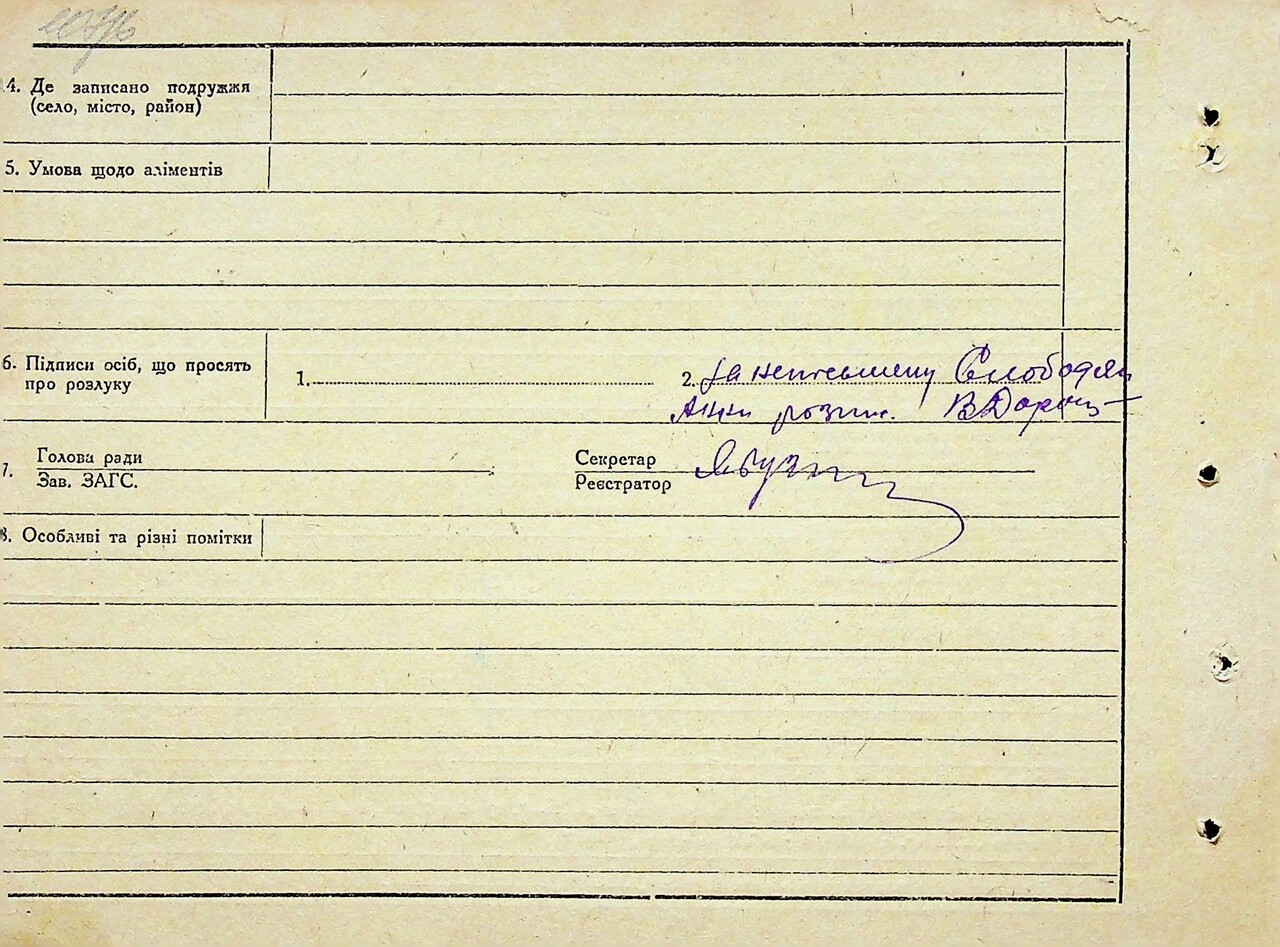 4. Де записано подружжя
(село, місто, район)
5. Умова щодо аліментів
6. Підписи осіб, що просять
про розлуку
1.
2. за неписьменну Слободян
Анни розпис.
7. Голова ради
Зав. ЗАГС.
Секретар
Реєстратор
8. Особливі та різні помітки